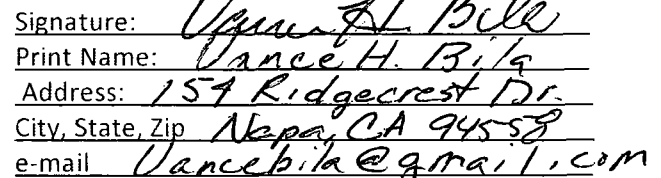 Signature: Vance H. Bila
Print Name: Vance H. Bila
Address: 154 Ridgecrest Dr.
City, State, Zip Napa, CA 94558
e-mail Vancebila@gmail.com